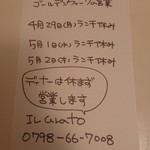 ゴールデンウィークの営業
4月29日(月)ランチ休み
5月1日(水)ランチ休み
5月2日(木)ランチ休み
ディナーは休まず
営業します
IL curato
0798-66-7008